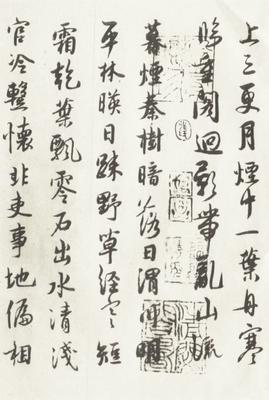 上三更月煙中一葉舟寒
閣迥亂山
暮煙秦樹暗落日渭川明
平林暎日疎野草經寒短
霜乾葉飄零石出水清淺
官冷整懷非吏事地偏相